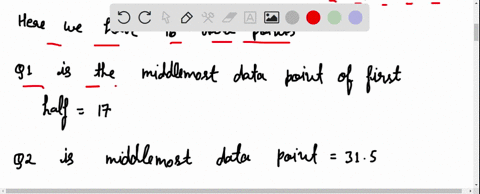 Here we have
Q1 is the middlemost data point of first
half = 17
Q2 is middlemost data point = 31.5